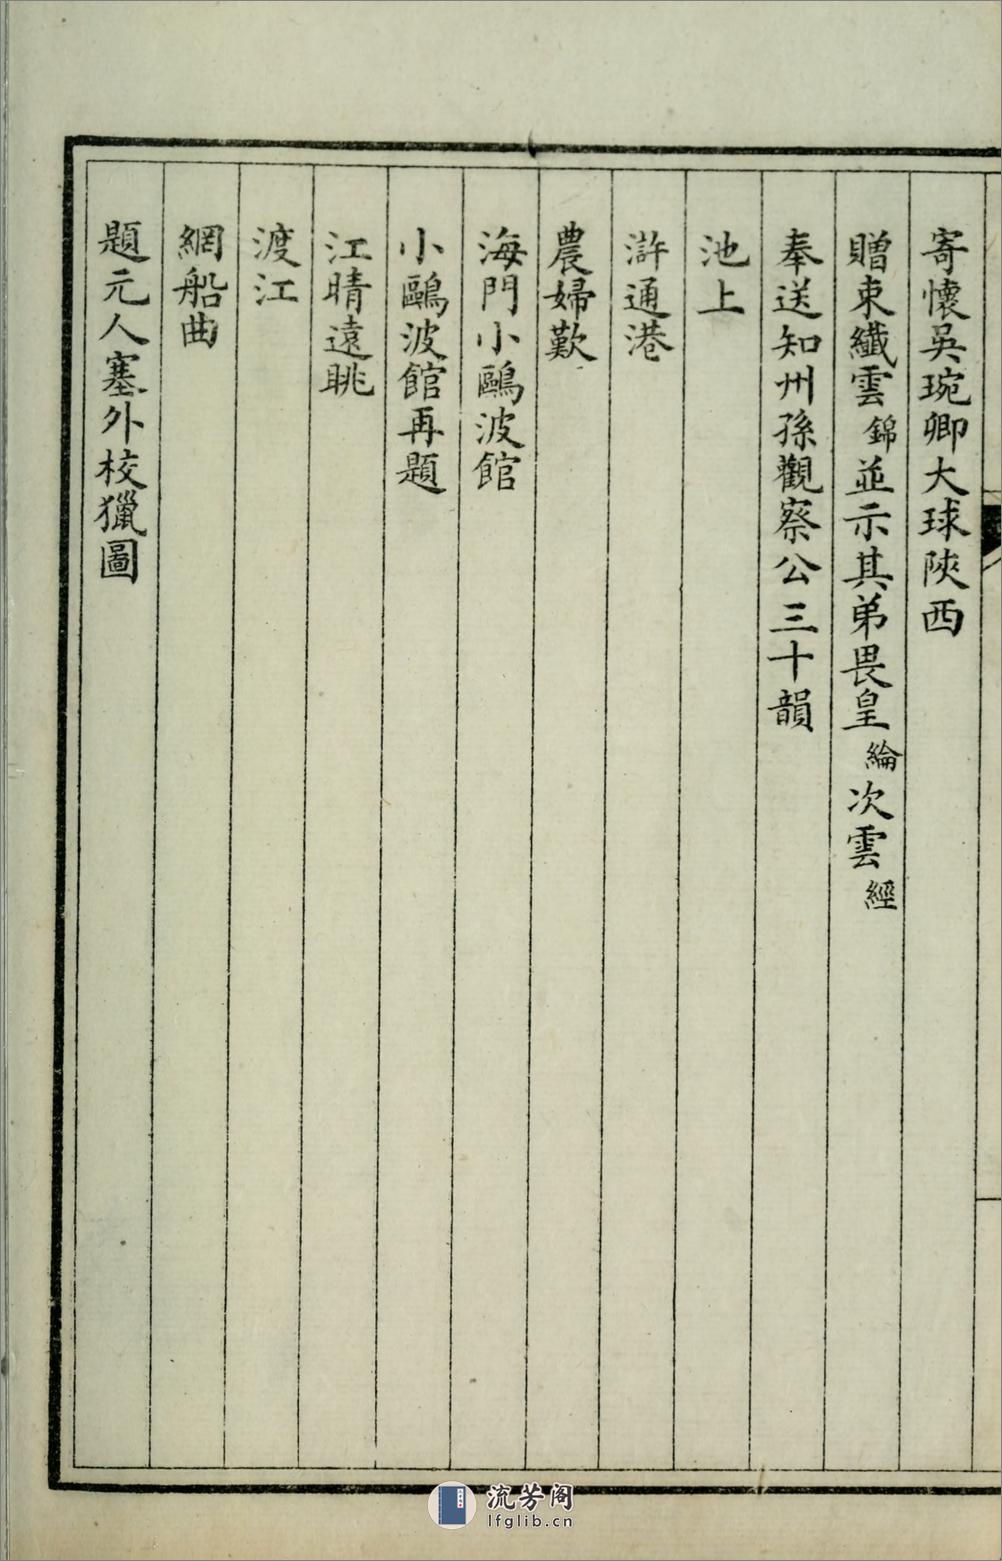 寄懷吳琬卿大球陝西
贈束纖雲錦並示其弟畏皇綸次雲經
奉送知州孫觀察公三十韻
池上
滸通港
農婦歎
海門小鷗波館
小鷗波館再題
江晴遠眺
渡江
網船曲
題元人塞外校獵圖
流芳阁
lfglib.cn